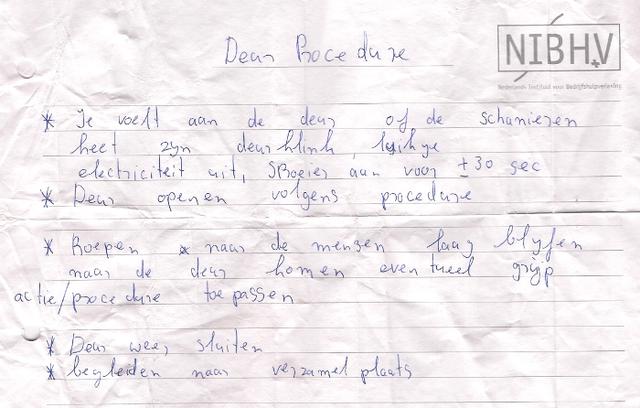 Deur Procedure
NIBHV
Nederlands Instituut voor Bedrijfshulpverlening
* Je voelt aan de deur of de schanieren
heet zyn deurklink,
electriciteit uit, SProeier aan voor ±30 sec
* Deur openen volgens procedure
* Roepen naar de mensen laag blyfen
naar de deur komen eventueel grijp
actie/procedure toepassen
* Deur weer sluiten
* begleiden naar verzamelplaats